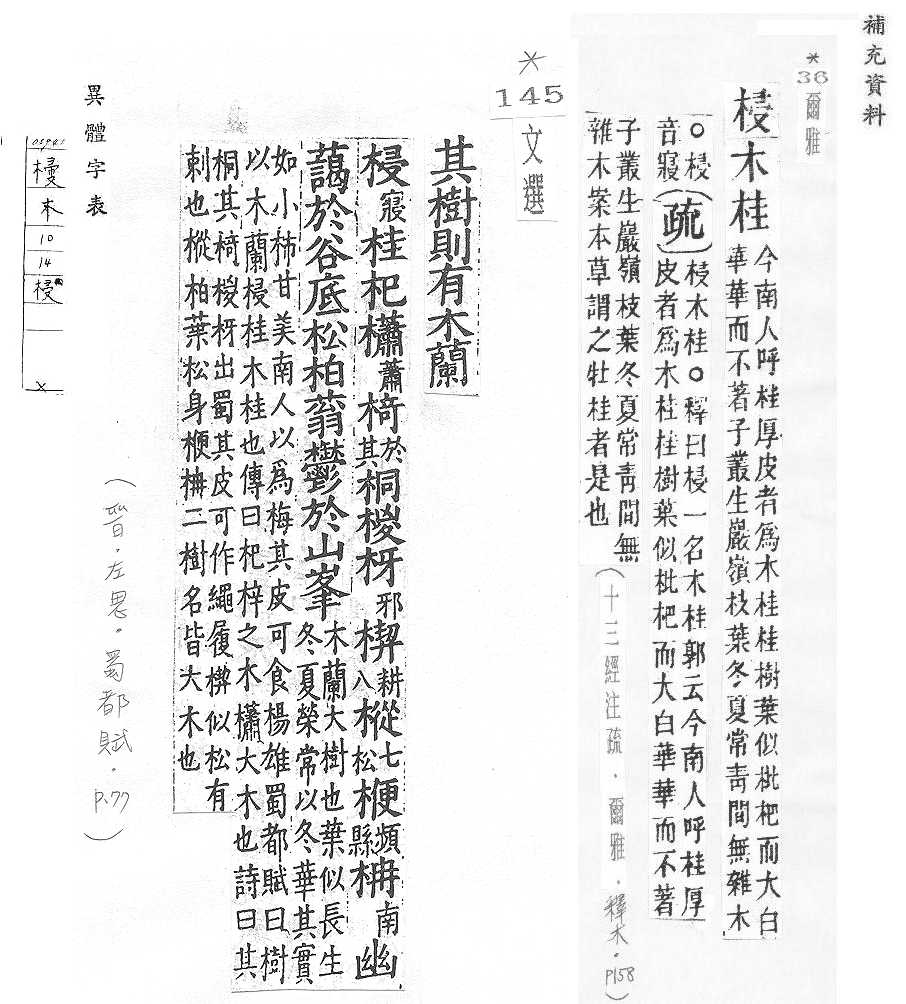 補充資料
*
36
爾雅
梫木桂 今南人呼桂厚皮者爲木桂桂樹葉似枇杷而大白
華華而不著子叢生巖嶺枝葉冬夏常青間無雜木
○梫
音寢
(疏)
梫木桂○釋曰梫一名木桂郭云今南人呼桂厚
皮者爲木桂桂樹葉似枇杷而大白華華而不著
子叢生巖嶺枝葉冬夏常青間無
雜木案本草謂之牡桂者是也
(十三經注疏.爾雅.釋木.p158)
*
145
文選
其樹則有木蘭
梫寢桂杞櫹蕭椅於其桐椶枒邪楔耕八樅七松楩頻縣柟南幽
藹於谷底松柏蓊鬱於山峯 木蘭大樹也葉似長生
冬夏榮常以冬華其實
如小柿甘美南人以爲梅其皮可食楊雄蜀都賦曰樹
以木蘭梫桂木桂也傳曰杞梓之木櫹大木也詩曰其
桐其椅椶枒出蜀其皮可作繩履楔似松有
刺也樅柏葉松身楩柟二樹名皆大木也
(晉.左思.蜀都賦.p.77)
異體字表
本
10
14
梫
×